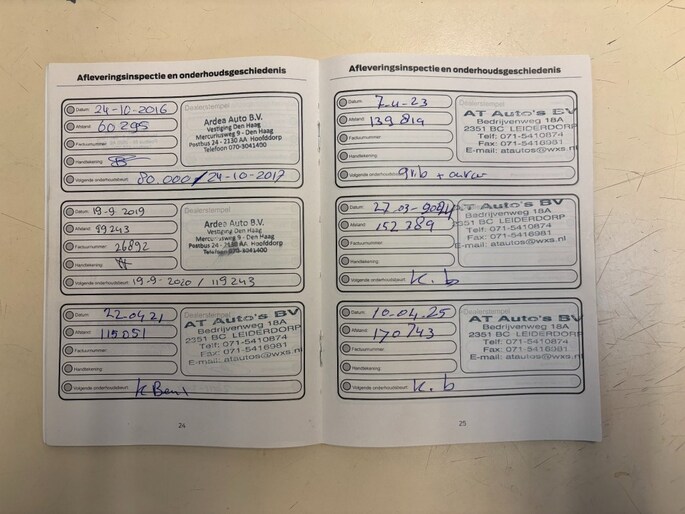 Afleveringsinspectie en onderhoudsgeschiedenis
Datum: 24-10-2016
Afstand: 60295
Factuurnummer:
Handtekening:
Volgende onderhoudsbeurt: 80.000 / 24-10-2017
Dealerstempel
Ardea Auto B.V.
Vestiging Den Haag
Mercuriusweg 9 - Den Haag
Postbus 24 - 2130 AA Hoofddorp
Telefoon 070-3041400
Datum: 19-9-2019
Afstand: 99243
Factuurnummer: 26892
Handtekening:
Volgende onderhoudsbeurt: 19-9-2020 / 119243
Dealerstempel
Ardea Auto B.V.
Vestiging Den Haag
Mercuriusweg 9 - Den Haag
Postbus 24 - 2130 AA Hoofddorp
Telefoon 070-3041400
Datum: 22.04.21
Afstand: 115051
Factuurnummer:
Handtekening:
Volgende onderhoudsbeurt: K Beurt
Dealerstempel
AT Auto's BV
Bedrijvenweg 18A
2351 BC LEIDERDORP
Telf: 071-5410874
Fax: 071-5416981
E-mail: atautos@wxs.nl
24
Afleveringsinspectie en onderhoudsgeschiedenis
Datum:
Afstand: 139819
Factuurnummer:
Handtekening:
Volgende onderhoudsbeurt:
Dealerstempel
AT Auto's BV
Bedrijvenweg 18A
2351 BC LEIDERDORP
Telf: 071-5410874
Fax: 071-5416981
E-mail: atautos@wxs.nl
Datum: 27-03-2024
Afstand: 152289
Factuurnummer:
Handtekening:
Volgende onderhoudsbeurt: K.b
AT Auto's BV
Bedrijvenweg 18A
2351 BC LEIDERDORP
Telf: 071-5410874
Fax: 071-5416981
E-mail: atautos@wxs.nl
Datum: 10.04.25
Afstand: 170743
Factuurnummer:
Handtekening:
Volgende onderhoudsbeurt: K.b
Dealerstempel
AT Auto's BV
Bedrijvenweg 18A
2351 BC LEIDERDORP
Telf: 071-5410874
Fax: 071-5416981
E-mail: atautos@wxs.nl
25